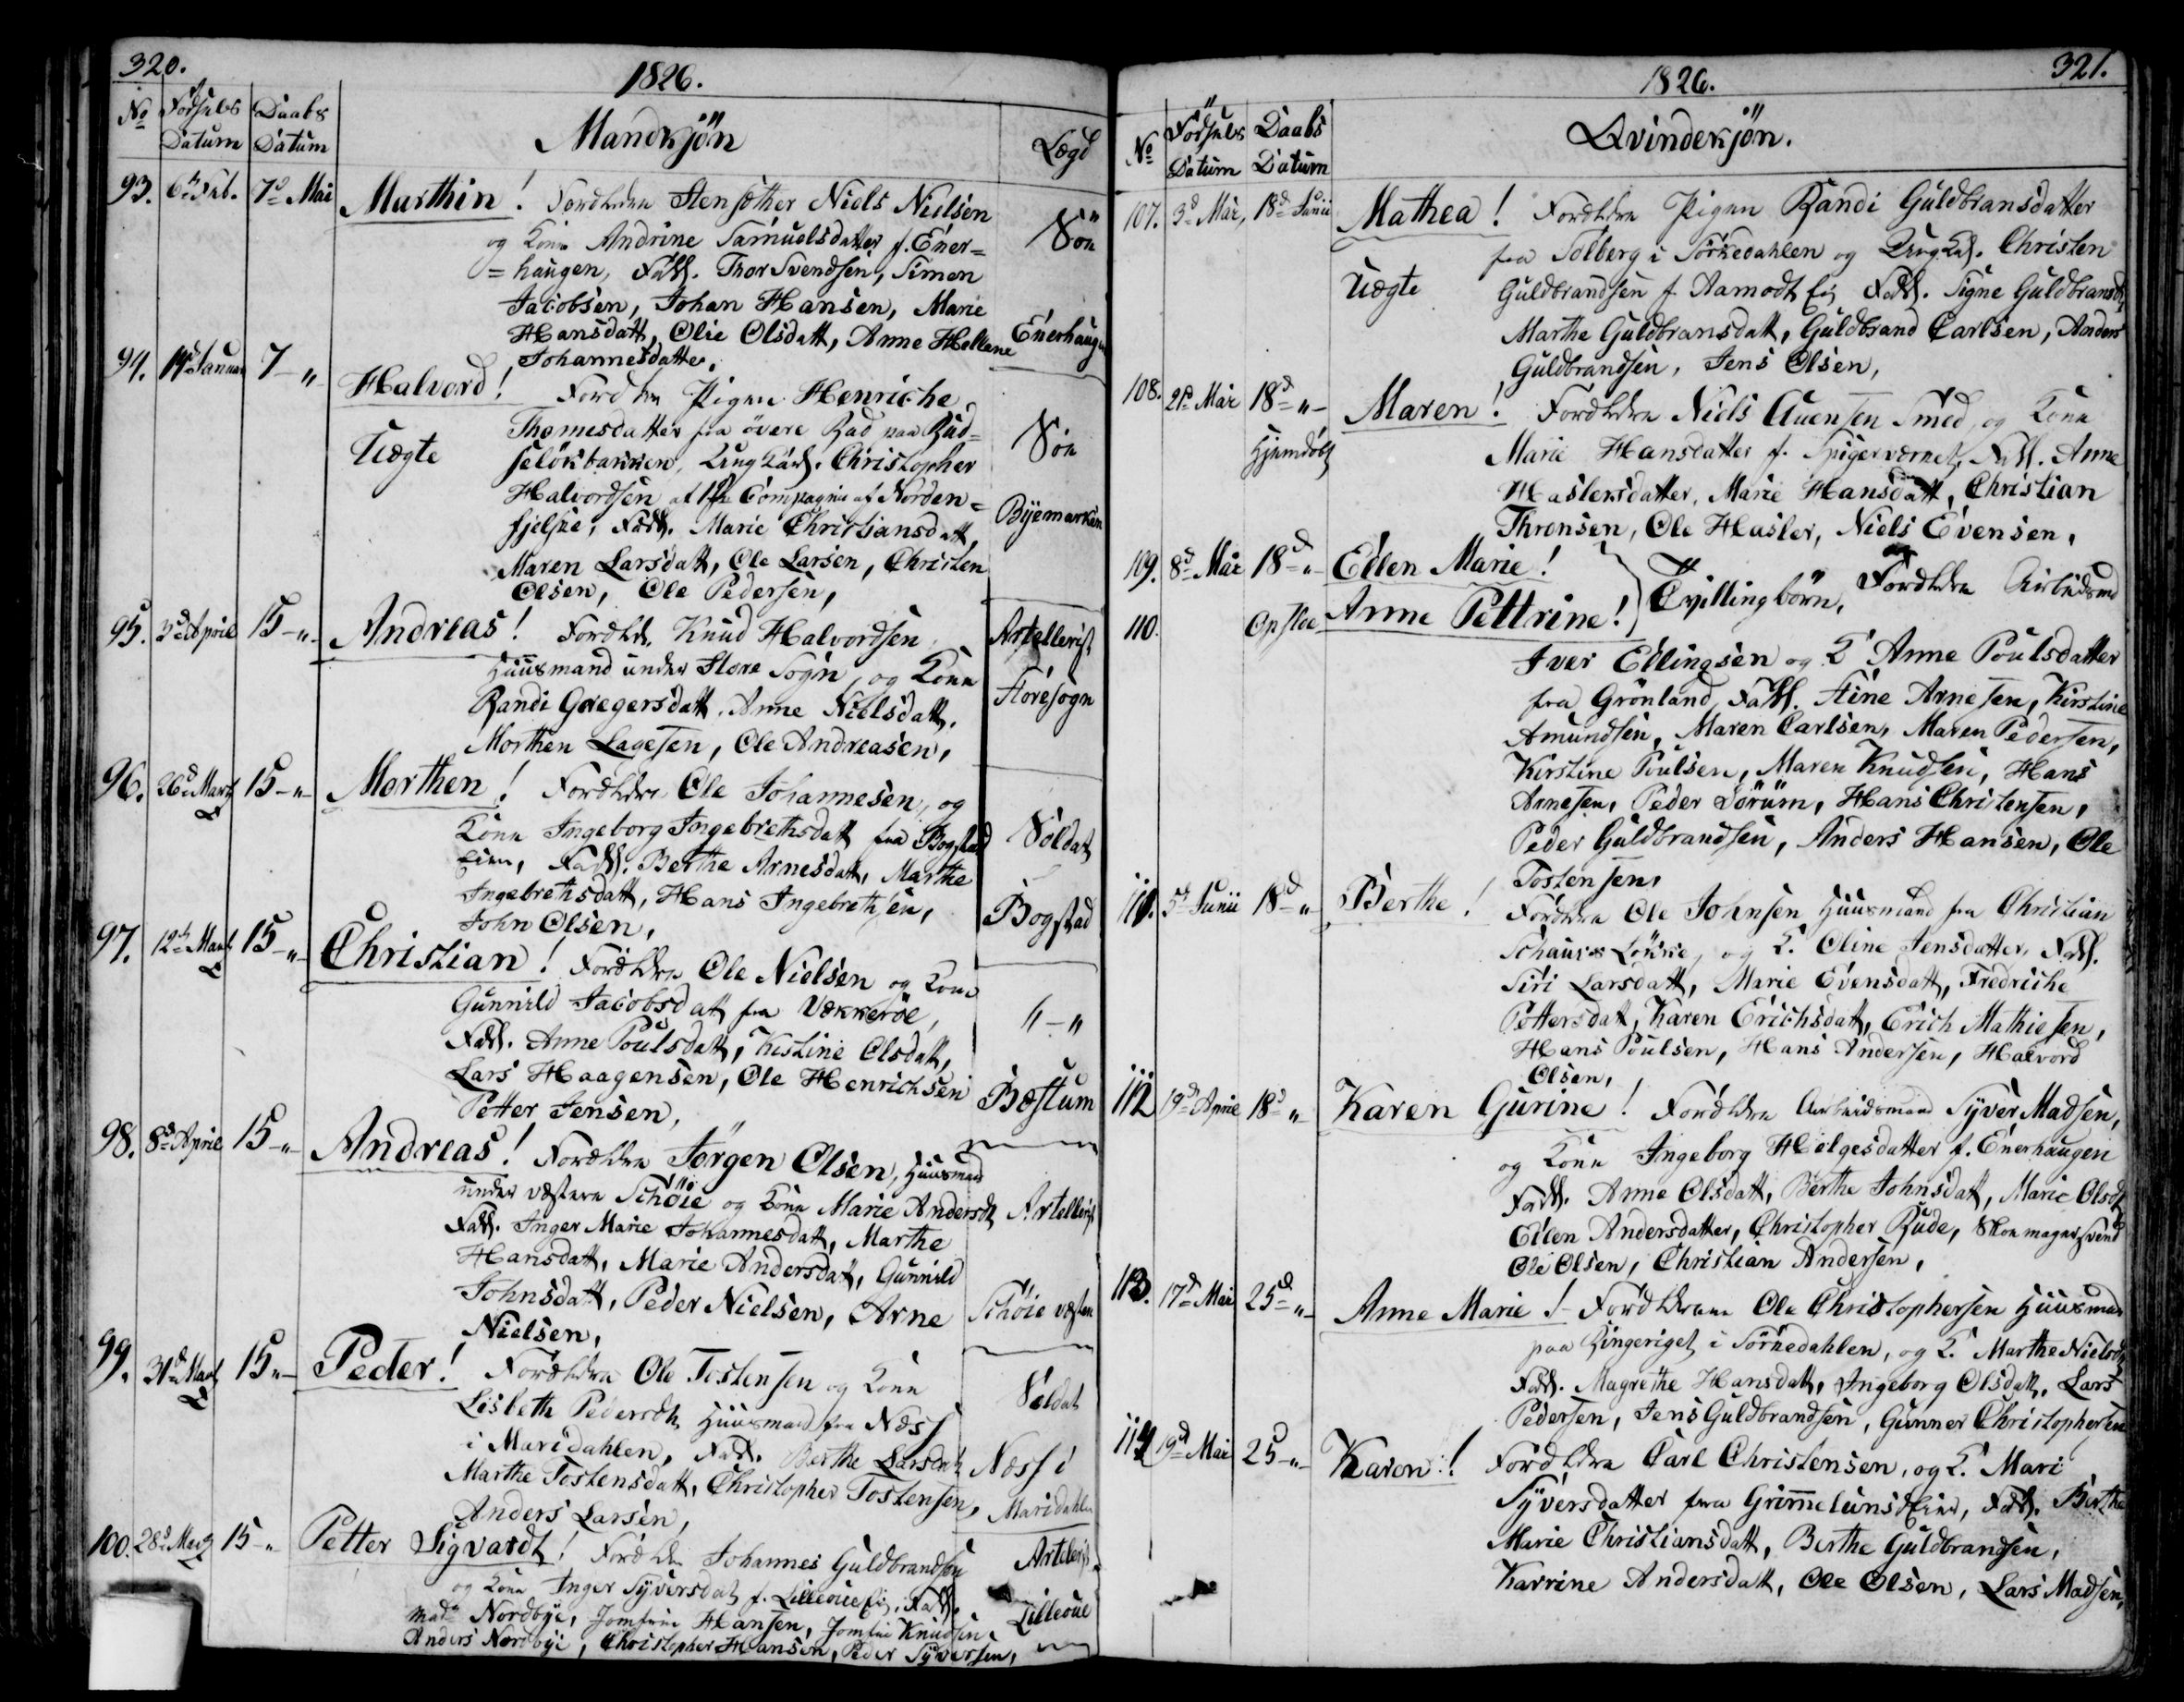 320.
1826.
No Födsels Datum
Daabs Datum
Mandkjön
Lægd
93. 6te Feb. 7d Mai Marthin! Forældre Stensether Niels Nielsen
og Kone Andrine Samuelsdatter f. Ener=
=haugen, Fadd. Thor Svendsen, Simen
Jacobsen, Johan Hansen, Marie
Hansdatt, Olie Olsdatt, Anne Hellene
Johannesdatter.
Sön
Enerhaugen
94. Januar 7 — " Halvord! Foræld Pigen Henriche
Uægte
Thomesdatter fra övere Rad paa Rud=
selökbakken, Ung Karl. Christopher
Halvordsen af Compagnie af Norden=
fjelske, Fadd. Marie Christiansdatt,
Maren Larsdatt, Ole Larsen, Christen
Olsen, Ole Pedersen,
Sön
Byemarken
95. 3d April 15 — " — Andreas! Foræld. Knud Halvordsen
Huusmand under Store Sogn, og Kone
Randi Gregersdatt. Anne Nielsdatt.
Morthen Lagesen, Ole Andreasen,
Artellerist
Storesogn
96. 26d Marts 15 — " — Morthen! Forældre Ole Johannesen, og
Kone Ingeborg Ingebrethsdatt fra Bogstad
Eien, Fadd. Berthe Arnesdatt, Marthe
Ingebrethsdatt, Hans Ingebrethsen,
John Olsen,
Soldat
Bogstad
97. 12te Marts 15 — " — Christian! Forældre Ole Nielsen og Kone
Gunnild Jacobsdatt fra Vækkeröe,
Fadd. Anne Poulsdatt, Kistine Olsdatt,
Lars Haagensen, Ole Henrichsen
Petter Jensen,
" — "
Bæstum
98. 8d April 15 — " Andreas! Forældre Jörgen Olsen, Huusmand
under væstern Schöie og Kone Marie Andersdt,
Fadd. Inger Marie Johannesdatt, Marthe
Hansdatt, Marie Andersdatt, Gunnild
Johnsdatt, Peder Nielsen, Arne
Nielsen,
Artellerist
Schöie væstern
99. 31d Marts 15 " — Peder! Forældre Ole Tostensen og Kone
Lisbeth Pedersdt, Huusmand fra Næss
i Maridahlen, Fadd. Berthe Larsdatt
Marthe Tostensdatt, Christopher Tostensen,
Anders Larsen,
Soldat
Næss i
Maridahlen
100. 28d Marts 15 — " Petter Sigvardt! Foræld Johannes Guldbrandsen
og Kone Inger Syversdat f. Lilleoue Ei, Fadd.
Mad Nordbye, Jomfrue Hansen, Jomfrue Knudsen,
Anders Nordbye, Christopher Hansen, Peder Syversen,
Artelerist
Lilleoue
321.
1826.
No Födsels Datum
Daabs Datum
Qvindekjön.
107. 3d Mai, 18d Junii Mathea! Forældre Pigen Randi Guldbransdatter
Uægte
fra Solberg i Sörkedahlen og Ung Karl. Christen
Guldbrandsen f. Aamodt Ei Fadd. Signe Guldbransdt,
Marthe Guldbransdatt, Guldbrand Carlsen, Anders
Guldbrandsen, Jens Olsen,
108. 21d Mai 18d " — Maren! Forældre Niels Auensen Smed, og Kone
Hjemdöbt
Marie Hansdatter f. Spigerværnet, Fadd. Anne
Haslersdatter, Marie Hansdatt, Christian
Thronsen, Ole Hasler, Niels Evensen,
109. 8d Mai 18d " Ellen Marie!
110. Opsloe Anne Pettrine! Tvillingbörn, Forældre Arbeidsmd
Iver Ellingsen og K Anne Poulsdatter
fra Grönland, Fadd. Stine Arnesen, Kirstine
Amundsen, Maren Carlsen, Maren Pedersen,
Kirstine Poulsen, Maren Knudsen, Hans
Arnesen, Peder Sörum, Hans Christensen,
Peder Guldbrandsen, Anders Hansen, Ole
Tostensen,
111. 5te Junii 18d " Berthe! Forældre Ole Johnsen Huusmand fra Christian
Schaus Lökke, og K. Oline Jensdatter, Fadd.
Siri Larsdatt, Marie Evensdatt, Fredriche
Pettersdat, Karen Erichsdatt, Erich Mathiesen,
Hans Poulsen, Hans Andersen, Halvord
Olsen,
112 19d April 18d " Karen Gurine! Forældre Arbeidsmand Syver Madsen,
og Kone Ingeborg Helgesdatter f. Enerhaugen
Fadd. Anne Olsdatt, Berthe Johnsdatt, Marie Olsdt,
Ellen Andersdatter, Christopher Rude, Skomagersvend
Ole Olsen, Christian Andersen,
113. 17d Mai 25d " — Anne Marie! Forældrene Ole Christophersen Huusmand
paa Ringeriget i Sörkedahlen, og K. Marthe Nielsdt,
Fadd. Magrethe Hansdatt, Ingeborg Olsdatt, Lars
Pedersen, Jens Guldbrandsen, Gunner Christophersen
114 19d Mai 25 — " — Karen! Forældre Carl Christensen, og K. Mari
Syversdatter fra Grimmelunds Eier, Fadd. Berthe
Marie Christiansdatt, Berthe Guldbrandsen,
Karrine Andersdatt, Ole Olsen, Lars Madsen,